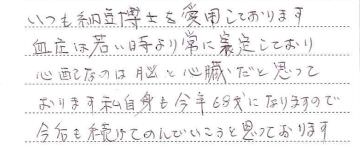 いつも納豆博士を愛用しております
血圧は若い時より常に安定しており
心配なのは脳と心臓だと思って
おります私自身も今年68才になりますので
今后も続けてのんでいこうと思っております